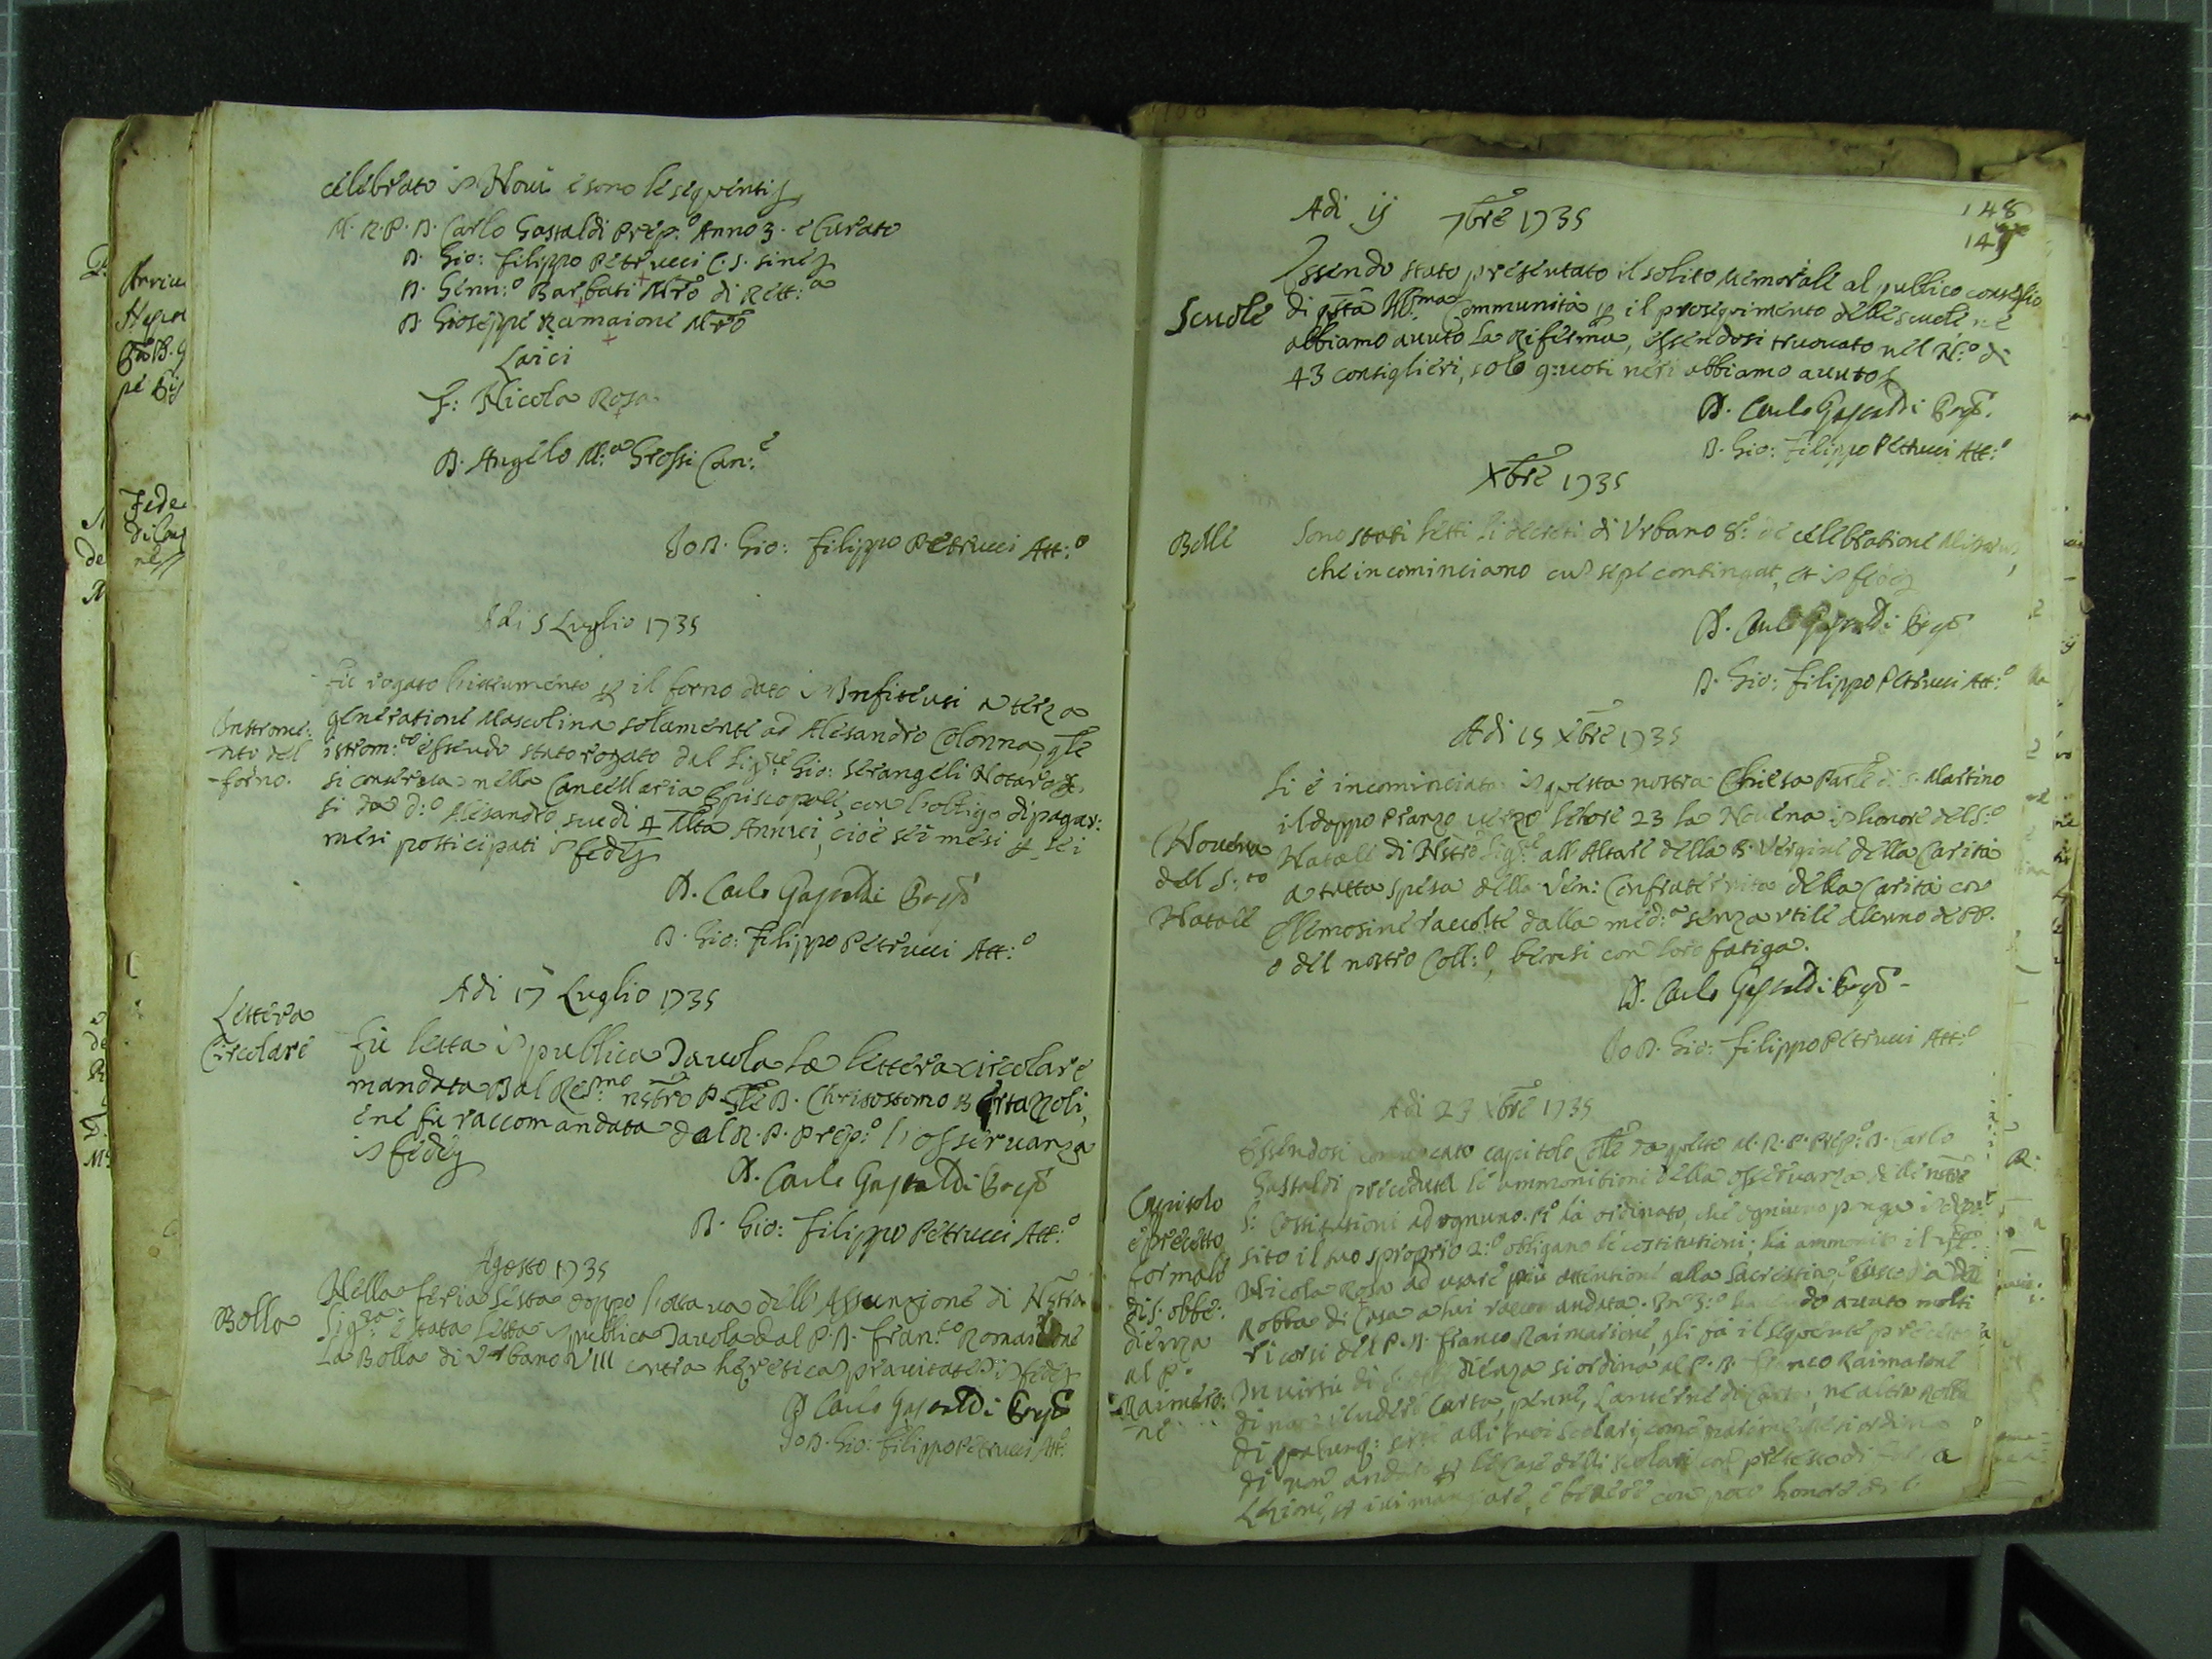 celebrato in Noui e sono le seguenti
M. R. P. D. Carlo Gastaldi Prep.o Anno 3. e Curato
D. Gio: Filippo Petrucci C. S. sine
D. Genn:o Barbati Mro di Rett:a
D. Gioseppe Ramaione Mro
Laici
F: Nicola Rosa
D. Angelo M:a Grossi Can:e
Io D. Gio: Filippo Petrucci Att:o
Adi 5 Luglio 1735
Instrome:
nto del
forno.
Fù rogato l'istrumento il forno dato in Infiteusi a terza
generatione Mascolina solamente ad Alesandro Colonna, qle
istrom:to essendo stato rogato dal Sigre Gio: Serangeli Notaro
si conserva nella Cancellaria Episcopale, con l'obligo di pagar:
si da d:o Alesandro scudi 4 Annui, cioè sei mesi sei
mesi posticipati in fede
D. Carlo Gastaldi Prepo
D. Gio: Filippo Petrucci Att:o
Adi 17 Luglio 1735
Lettera
Circolare
Fù letta in publica Tauola la lettera circolare
mandata Dal Resmo nstro P. Gle D. Chrisostomo Bertazoli,
e ne fù raccomandata dal R. P. Prep:o l'osseruanza
in fede
D. Carlo Gastaldi Prepo
D. Gio: Filippo Petrucci Att:o
Agosto 1735
Bolla
Nella feria sesta doppo l'ottaua dell'Assunzione di Nstra
Sigra è stata letta in publica Tauola dal P. D. Fran:co Romaione
La Bolla di Vrbano VIII contra heretica prauitate in fede
D Carlo Gastaldi Prepo
Io D. Gio: Filippo Petrucci Att:o
148
Adi ij 7bre 1735
Scuole
Essendo stato presentato il solito Memoriale al publico conseglio
di qsta Illma Communità il proseguimento delle scuole ne
abbiamo auuto la Riferma, essendosi truouato nel N:o di
43 consiglieri, solo 9: uoti neri abbiamo auuto
D. Carlo Gastaldi Prepo.
D. Gio: Filippo Petrucci Att:o
Xbre 1735
Bolle
Sono stati letti li decreti di Vrbano 8:o de celebratione Missarum,
che incominciano cum sepe contingat, et in fede
D. Carlo Gastaldi Prepo
D. Gio: Filippo Petrucci Att:o
Adi 15 Xbre 1735
Nouena
del S:to
Natale
Si è incominciata in questa nostra Chiesa Parle di S. Martino
il doppo Pranzo uerso le hore 23 la Nouena in honore del S:o
Natale di Nstro Sigre all Altare della B. Vergine della Carità
a tutta spesa della Ven: Confraternita della Carità con
Elemosine raccolte dalla med:a senza utile alcuno de PP.
o del nostro Coll:o, bensi con loro fatiga.
D. Carlo Gastaldi Prepo
Io D. Gio: Filippo Petrucci Att:o
Adi 23 Xbre 1735
Capitolo
e precetto
formale
di S. obbe:
dienza
al P.
Raimaro:
ne
Essendosi conuocato capitolo Colle da molto M. R. P. Prep:o D. Carlo
Gastaldi precedute le ammonitioni della osseruanza delle nstre
S: Costitutioni ad ognuno. P:o hà ordinato, che ogniuno ponga in depo:
sito il suo sproprio 2:o obligano le costitutioni; hà ammonito il
Nicola Rosa ad usare più attentione alla Sacrestia, e custodia della
Robba di Casa a lui raccomandata. 3:o hauendo auuto molti
ricorsi del P. D. Franco Raimarione, gli fà il seguente precetto
In uirtù di S. obbedienza si ordina al P. D. Franco Raimarone
di non uendere Carta, penne, Lanterne di Carta, ne altra Robba
di alli suoi scolari, come si ordina
di non andare le Case delli scolari con pretesto di
Lezione, et iui mangiare, e beuere con poco honore